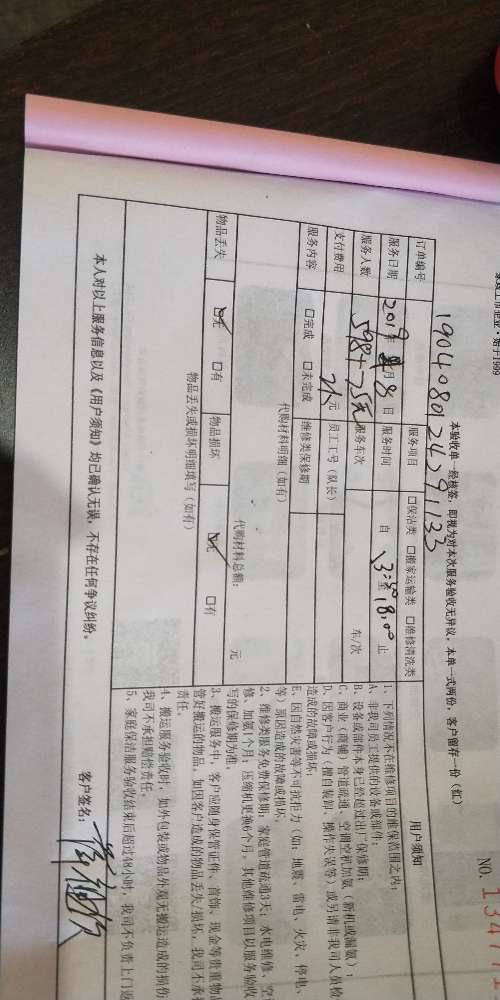 家政上市企业·始于1999
NO. 13477
本验收单一经核签，即视为对本次服务验收无异议，本单一式两份，客户留存一份（红）
订单编号 服务项目 □保洁类 □搬家运输类 □维修清洗类
服务日期 2019年 月8日 服务时间 自 至18:00止
服务人数 服务车次 车/次
支付费用 元 员工工号（队长）
服务内容 □完成 □未完成 维修类保修期
代购材料明细（如有）
代购材料总额： 元
物品丢失 □无 □有 物品损坏 □无 □有
物品丢失或损坏明细填写（如有）
用户须知
1、下列情况不在维修项目的维保范围之内：
A、非我司员工提供的设备或部件；
B、设备或部件本身已经超过出厂保修期；
C、商业（商铺）管道疏通、空调空机加氨（新机或漏氨）；
D、因客户行为（擅自装卸、操作失误等）或另请非我司人员检
造成的故障或损坏；
E、因自然灾害等不可抗拒力（如：地震、雷电、火灾、停电、
等）原因造成的故障或损坏。
2、维修类服务免费保修期：家庭管道疏通3天；水电维修、空
修、加氨1个月；压缩机更换6个月，其他维修项目以服务验收
写的保修期为准。
3、搬运服务中，客户应随身保管证件、首饰、现金等贵重物品
管好搬运的物品，如因客户造成的物品丢失/损坏，我司不承
责任。
4、搬运服务验收时，如外包装或物品外观无搬运造成的损伤
我司不承担赔偿责任。
5、家庭保洁服务验收结束后超过48小时，我司不负责上门返
本人对以上服务信息以及《用户须知》均已确认无误，不存在任何争议纠纷。
客户签名：